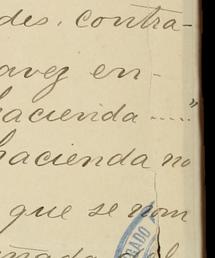 des, contra-
avez en-
hacienda ....."
hacienda no
que se nom